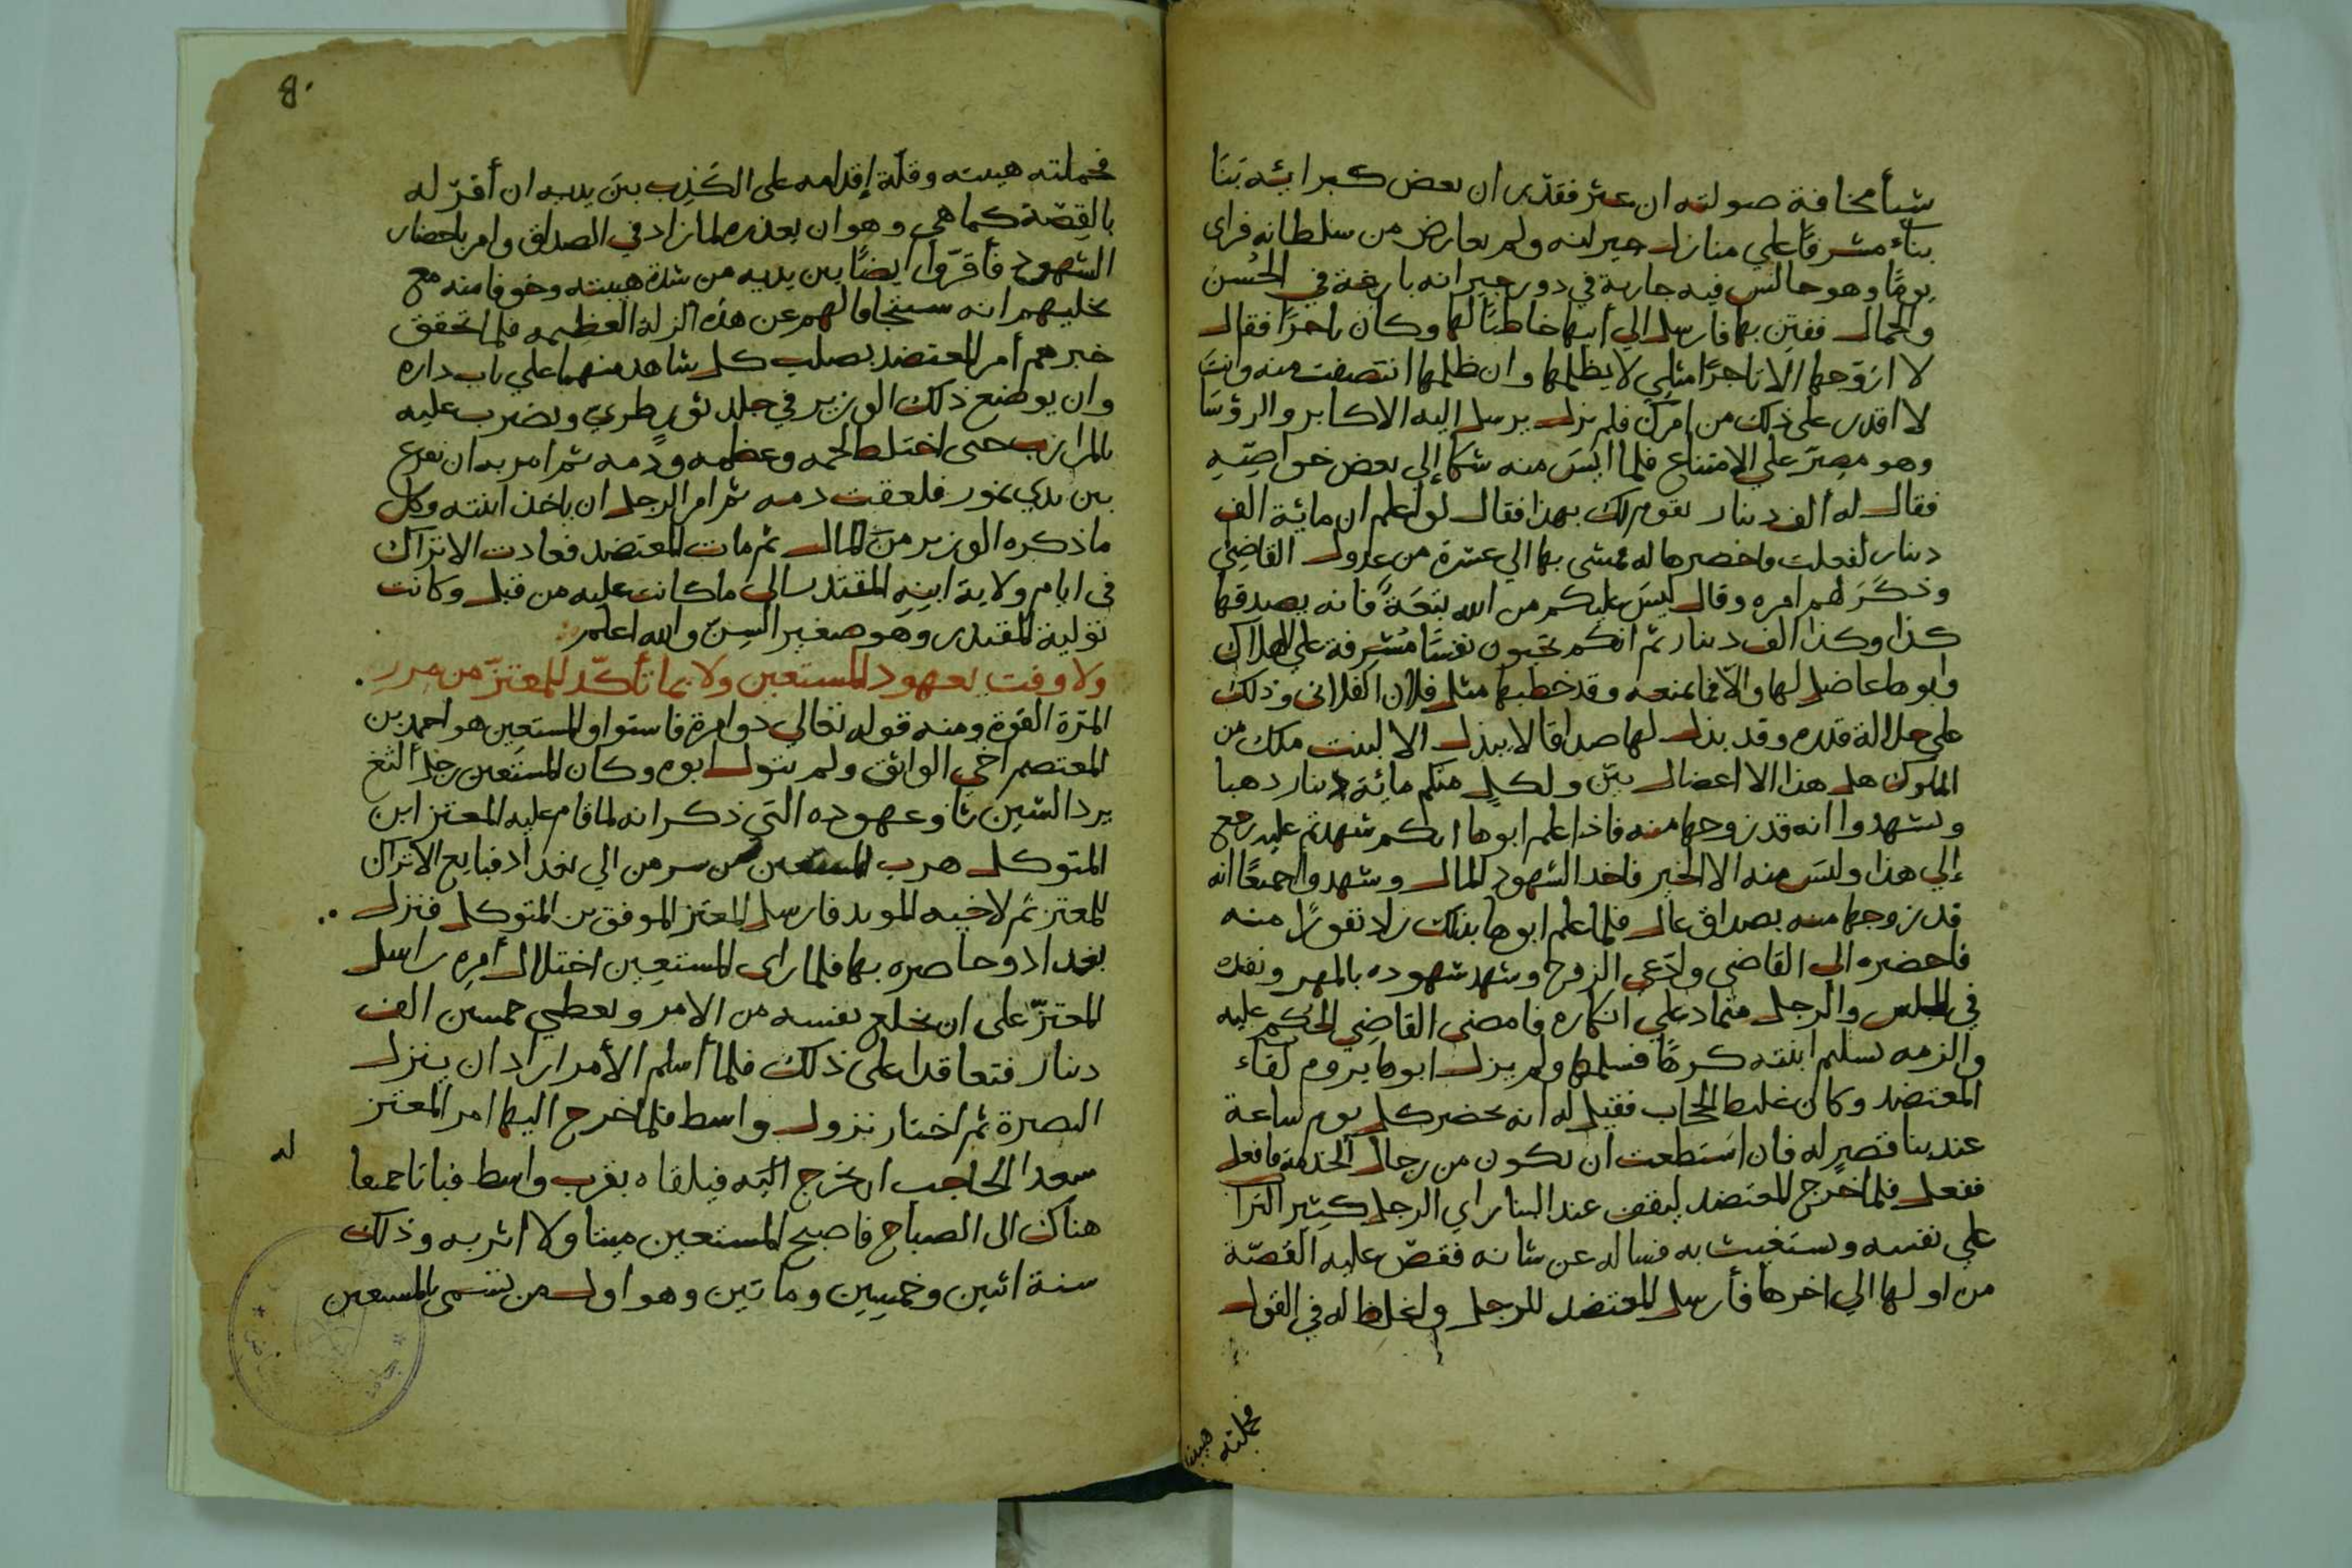 شيأ مخافة صولته ان عثر فقدر ان بعض كبرائه بنا
بناء مشرفا علي منازل جيرانه ولم يعارض من سلطانه فراى
يومًا وهو جالس فيه جارية في دور جيرانه بارعة في الحُسن
والجمال ففتن بها فارسل الي أبيها خاطبًا لها وكان تاجرًا فقال
لا ازوّجها الا تاجرًا مثلي لا يظلمها وان ظلمها انتصفت منه وانت
لا اقدر على ذلك من امرك فلم يزل يرسل اليه الاكابر والرؤسا
وهو مصرّ علي الامتناع فلما ايَسَ منه شكا إلي بعض خواصّه
فقال له ألف دينار تقوم لك بهذا فقال لو اعلم ان مائة الف
دينار لفعلت فاحضرها له فمشى بها الي عشرة من عدول القاضي
وذكَرَ لهم امره وقال ليسَ عليكم من الله تبَعَةً فانه يصدقها
كذا وكذا الف دينار ثم انكم تحيون نفسًا مُشرفة علي الهلاك
وابوها عاضل لها والاّ فما يمنعه وقد خطبها مثل فلان الفلانى وذلك
علي جلالة قدره وقد بذل لها صداقا لا يبذل الا لبنت ملك من
الملوك هل هذا الا اعضال بيّن ولكلٍ منكم مائة دينار ذهبا
وتشهدوا انه قد زوجها منه فاذا علم ابوها انكم شهدتم عليه رجع
إلي هذا وليسَ منه الا الخير فاخذ الشهود المال وشهدوا جميعًا انه
قد زوجها منه بصداق عال فلما علم ابوها بذلك زاد نفورًا منه
فاحضره الى القاضي وادّعى الزوج وشهد شهوده بالمهر ونقده
في المجلس والرجل متماد علي انكاره فامضى القاضِي الحُكم عليه
والزمه تسليم ابنته كرهًا فسلمها ولم يزل ابوها يروم لقاء
المعتضد وكان غليظ الحجاب فقيل له انه يحضر كل يوم ساعة
عند بنا قصيرٍ له فان استطعت ان تكون من رجال الخدمة فافعل
ففعل فلما خرج المعتضد ليقف عند البنا راي الرجل كثير الترا
علي نفسه ويستغيث به فساله عن شانه فقصّ عليه القصّة
من اولها الي اخرها فأرسل المعتضد للرجل واغلظ له في القول
فحملته هيبته
فحملته هيبته وقلّة إقدامه على الكَذِب بينَ يديه ان أقرّ له
بالقِصّة كما هي وهو ان يعذره لما زاد في الصداق وامر باحضار
الشهود فأقرّوا ايضًا بين يديه من شدة هيبته وخوفا منه مع
تخليهم انه سيتجافا لهم عن هذه الزلة العظيمه فلما تحقق
خبرهم أمر المعتضد بصلب كل شاهد منهما علي باب داره
وان يوضع ذلك الوزير في جلد ثورٍ طري ويضرب عليه
بالمرازب حتى اختلط لحمه وعظمه ودمه ثم امر به ان يفرغ
بين يدي نمور فلعقت دمه ثم امر الرجل ان ياخذ ابنته وكل
ما ذكره الوزير منَ المال ثم مات المعتضد فعادت الاتراك
في ايام ولاية ابنِهِ المقتدر الى ما كانت عليه من قبل وكانت
تولية المقتدر وهَو صغير السِنّ والله اعلم
ولا وفت بعهود المستعين ولا بما تأكّد للمعتزّ من مررِ
المَرّة القوة ومنه قوله تعالي ذوا مرة فاستوا والمستعين هو احمد بن
المعتصم اخي الواثق ولم يتول ابوه وكان المستعين رجلا ألثغ
يرد السّين ثا وعهوده التي ذكر انه لما قام عليه المعتز ابن
المتوكل هرب المستعين من سر من الي بغداد فبايع الاتراك
للمعتز ثم لاخيه المويد فارسل المعتز الموفق بن المتوكل فنزل
بغداد وحاصره بها فلما راى المستعِين اختلال أمرِه راسل
المعتزّ على ان يخلع نفسه من الامر ويعطي خمسين الف
دينار فتعاقدا على ذلك فلما أسلم الأمر اراد ان ينزل
البصرة ثم اختار نزول واسط فلما خرج اليها امر المعتز
سعدا الحاجب ان يخرج اليَه فيلقاه بقرب واسط فباتا جميعا
هناك الى الصباح فاصبح المستعين ميتا ولا اثر به وذلك
سنة اثنين وخمسِين وماتين وهو اول من تسمى بالمستعين